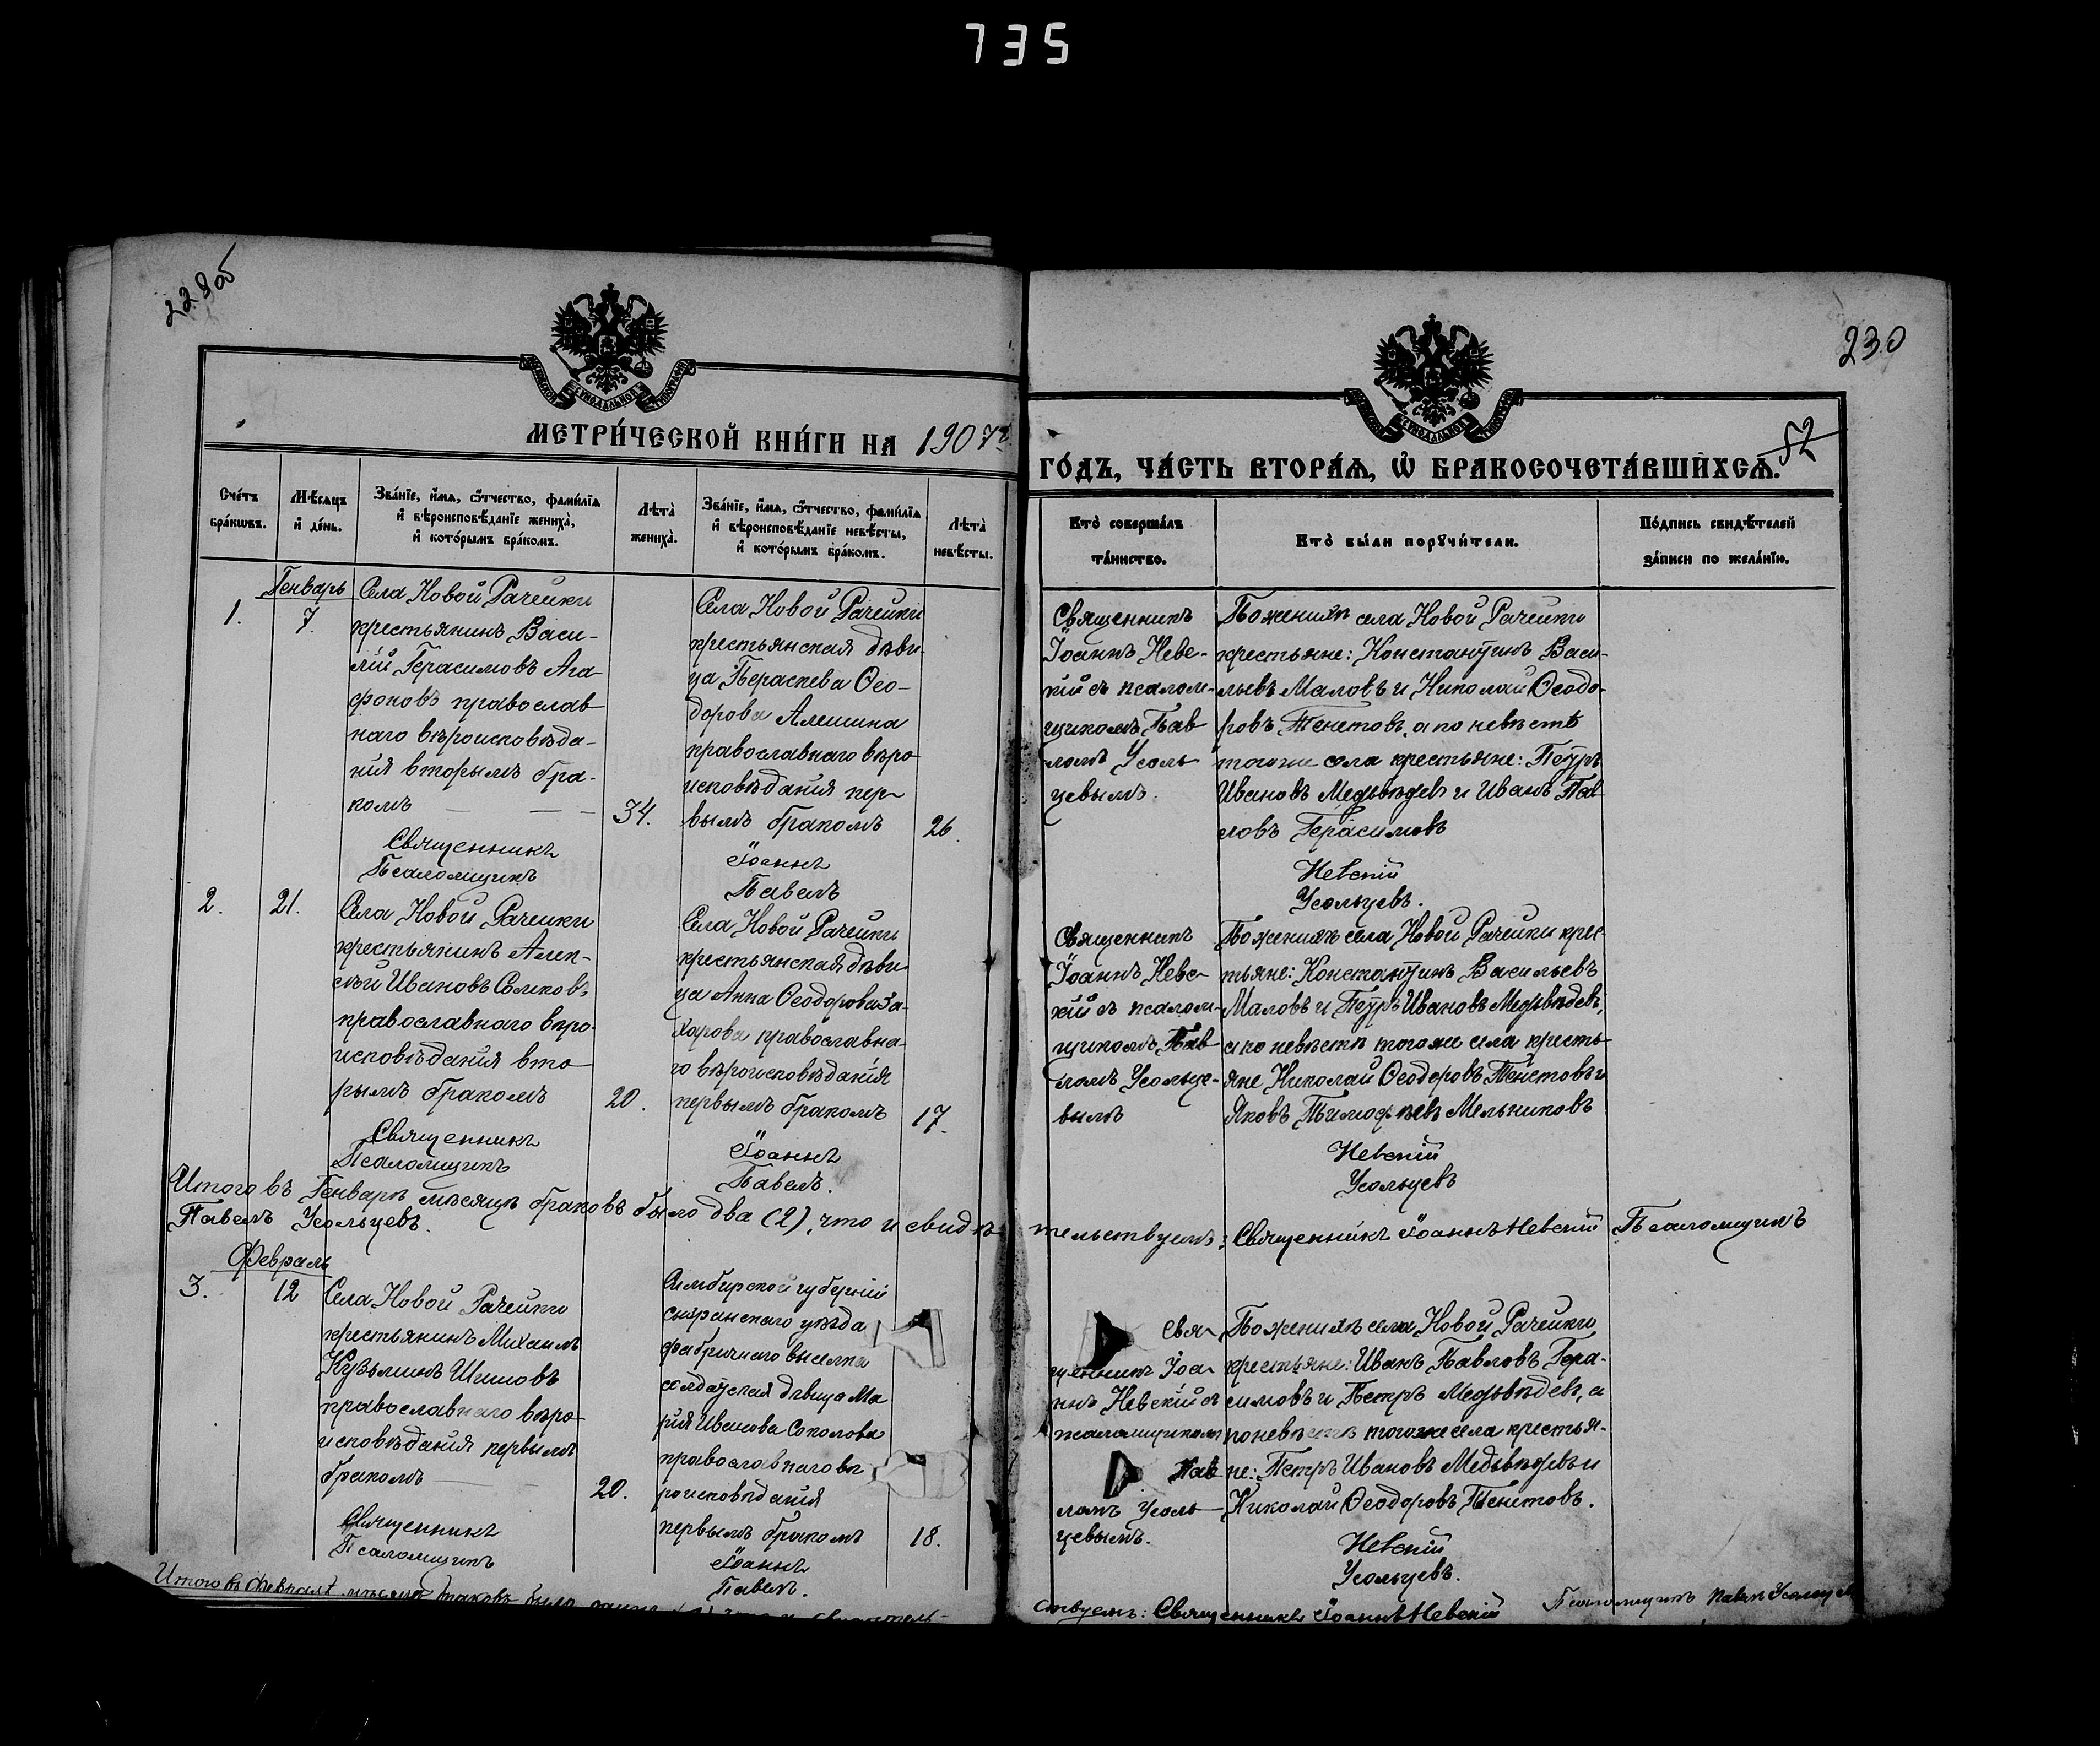 735
228об
230
52
МЕТРИ́ЧЕСКОЙ КНИ́ГИ НА 1907 г.
ГО́ДЪ, ЧА́СТЬ ВТОРА́Ѧ, Ѡ҆ БРАКОСОЧЕТА́ВШИХСѦ.
Сче́тъ бра́кѡвъ.
Мѣ́сѧцъ и҆ де́нь.
Зва́нїе, и҆́мѧ, ѻ҆́тчество, фами́лїѧ
и҆ вѣроисповѣ́данїе жениха̀,
и҆ кото́рымъ бра́комъ.
Лѣта̀ жениха̀.
Зва́нїе, и҆́мѧ, ѻ҆́тчество, фами́лїѧ
и҆ вѣроисповѣ́данїе невѣ́сты,
и҆ кото́рымъ бра́комъ.
Лѣта̀ невѣ́сты.
Кто̀ соверша́лъ та́инство.
Кто̀ бы́ли порꙋчи́тели.
По́дпись свидѣ́телей
за́писи по жела́нїю.
Генварь
1.
7.
Села Новой Рачейки
крестьянинъ Васи-
лій Герасимовъ Ага-
фоновъ православ
наго вѣроисповѣда-
нія вторымъ бра-
комъ
34.
Села Новой Рачейки
крестьянская дѣви
ца Параскева Ѳео-
дорова Алешина
православнаго вѣро
исповѣданія пер-
вымъ бракомъ
26.
Священникъ
Іоаннъ Невс-
кій съ псалом-
щикомъ Пав
ломъ Усоль
цевымъ.
По женихѣ села Новой Рачейки
крестьяне: Константинъ Васи-
льевъ Маловъ и Николай Ѳеодо-
ровъ Тенетовъ, а по невѣстѣ
тогоже села крестьяне: Петръ
Ивановъ Медвѣдевъ и Иванъ Пав
ловъ Герасимовъ
Священникъ Іоаннъ Невскій
Псаломщикъ Павелъ Усольцевъ.
2.
21.
Села Новой Рачейки
крестьянинъ Алек-
сѣй Ивановъ Сомковъ
православнаго вѣро-
исповѣданія вто
рымъ бракомъ
20.
Села Новой Рачейки
крестьянская дѣви
ца Анна Ѳеодорова За-
харова православна-
го вѣроисповѣданія
первымъ бракомъ
17.
Священникъ
Іоаннъ Невс-
кій съ псалом-
щикомъ Пав
ломъ Усольце-
вымъ
По женихѣ села Новой Рачейки крес-
тьяне: Константинъ Васильевъ
Маловъ и Петръ Ивановъ Медвѣдевъ,
а по невѣстѣ тогоже села кресть-
яне Николай Ѳеодоровъ Тенетовъ и
Яковъ Тимофѣевъ Мельниковъ
Священникъ Іоаннъ Невскій
Псаломщикъ Павелъ. Усольцевъ
Итого въ Генварѣ мѣсяцѣ браковъ было два (2), что и свидѣтельствуемъ: Священникъ Іоаннъ Невскій Псаломщикъ
Павелъ Усольцевъ.
Февраль
3.
12
Села Новой Рачейки
крестьянинъ Михаилъ
Кузьминъ Шишовъ
православнаго вѣро-
исповѣданія первымъ
бракомъ
20.
Симбирской губерніи
сызранскаго уѣзда
фабричнаго выселка
солдатская дѣвица Ма
рія Иванова Соколова
православнаго вѣ
роисповѣданія
первымъ бракомъ
18.
Свя-
щенникъ Іоа-
ннъ Невскій съ
псаломщикомъ
Пав
ломъ Усоль-
цевымъ.
По женихѣ села Новой Рачейки
крестьяне: Иванъ Павловъ Гера-
симовъ и Петръ Медвѣдевъ, а
по невѣстѣ тогоже села крестья-
не: Петръ Ивановъ Медвѣдевъ и
Николай Ѳеодоровъ Тенетовъ.
Священникъ Іоаннъ Невскій
Псаломщикъ Павелъ. Усольцевъ.
Итого въ Февралѣ мѣсяцѣ браковъ было
ствуемъ: Священникъ Іоаннъ Невскій Псаломщикъ Павелъ Усольцевъ